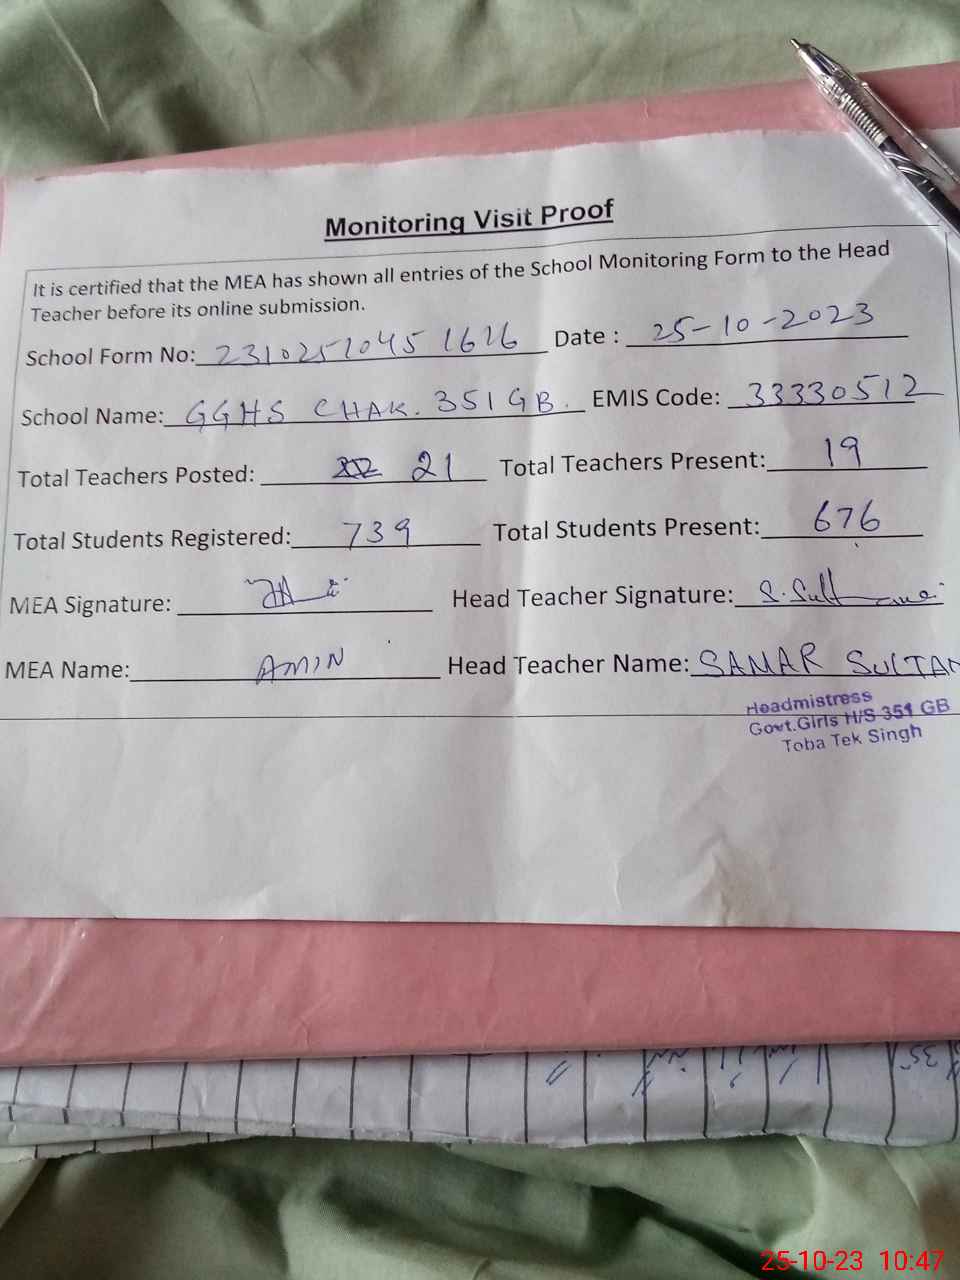 Monitoring Visit Proof
It is certified that the MEA has shown all entries of the School Monitoring Form to the Head
Teacher before its online submission.
School Form No: 2310251045 1616 Date : 25-10-2023
School Name: GGHS CHAK. 351 GB. EMIS Code: 33330512
Total Teachers Posted: 21 Total Teachers Present: 19
Total Students Registered: 739 Total Students Present: 676
MEA Signature: Head Teacher Signature: S. Sultana
MEA Name: AMIN Head Teacher Name: SAMAR SULTAN
Headmistress
Govt.Girls H/S 351 GB
Toba Tek Singh
35
25-10-23 10:47